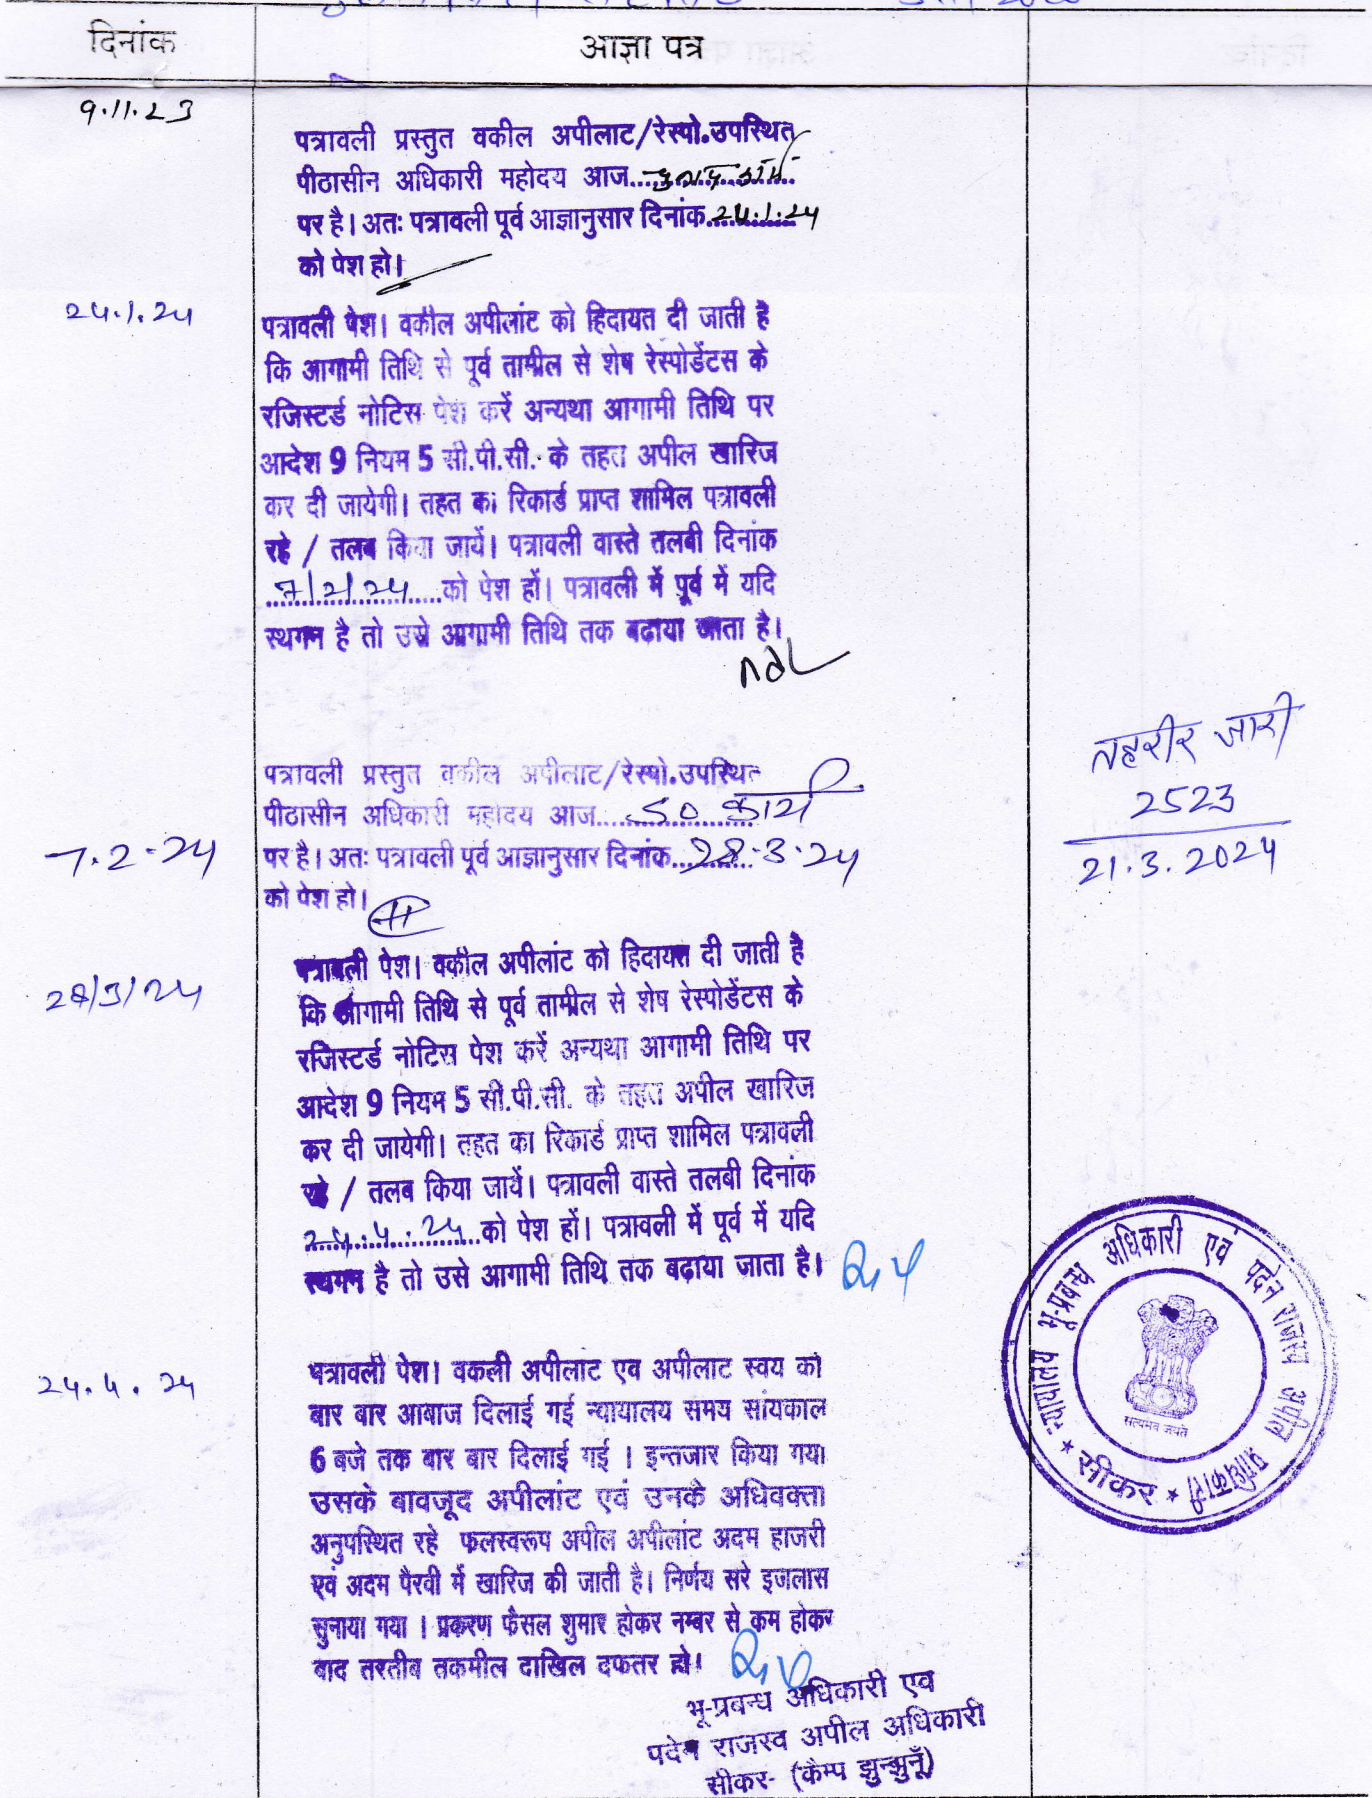 दिनांक
आज्ञा पत्र
9.11.23
पत्रावली प्रस्तुत वकील अपीलाट/रेस्पो.उपस्थित
पीठासीन अधिकारी महोदय आज....................
पर है। अतः पत्रावली पूर्व आज्ञानुसार दिनांक 24.1.24
को पेश हो।
24.1.24
पत्रावली पेश। वकील अपीलांट को हिदायत दी जाती है
कि आगामी तिथि से पूर्व तामील से शेष रेस्पोडेंटस के
रजिस्टर्ड नोटिस पेश करें अन्यथा आगामी तिथि पर
आदेश 9 नियम 5 सी.पी.सी. के तहत अपील खारिज
कर दी जायेगी। तहत का रिकार्ड प्राप्त शामिल पत्रावली
रहे / तलब किया जायें। पत्रावली वास्ते तलबी दिनांक
7/2/24 को पेश हों। पत्रावली में पूर्व में यदि
स्थगन है तो उसे आगामी तिथि तक बढाया जाता है।
पत्रावली प्रस्तुत वकील अपीलाट/रेस्पो.उपस्थित
पीठासीन अधिकारी महोदय आज.... S.O कार्य
7.2.24
पर है। अतः पत्रावली पूर्व आज्ञानुसार दिनांक 28.3.24
को पेश हो।
तहरीर जारी
2523
21.3.2024
28/3/24
पत्रावली पेश। वकील अपीलांट को हिदायत दी जाती है
कि आगामी तिथि से पूर्व तामील से शेष रेस्पोडेंटस के
रजिस्टर्ड नोटिस पेश करें अन्यथा आगामी तिथि पर
आदेश 9 नियम 5 सी.पी.सी. के तहत अपील खारिज
कर दी जायेगी। तहत का रिकार्ड प्राप्त शामिल पत्रावली
रहे / तलब किया जायें। पत्रावली वास्ते तलबी दिनांक
24.4.24 को पेश हों। पत्रावली में पूर्व में यदि
स्थगन है तो उसे आगामी तिथि तक बढ़ाया जाता है।
न्यायालय भू-प्रबन्ध अधिकारी एवं पदेन राजस्व अपील प्राधिकारी
* सीकर *
सत्यमेव जयते
24.4.24
पत्रावली पेश। वकली अपीलाट एव अपीलाट स्वय को
बार बार आबाज दिलाई गई न्यायालय समय सांयकाल
6 बजे तक बार बार दिलाई गई । इन्तजार किया गया
उसके बावजूद अपीलांट एवं उनके अधिवक्ता
अनुपस्थित रहे फलस्वरूप अपील अपीलांट अदम हाजरी
एवं अदम पैरवी में खारिज की जाती है। निर्णय सरे इजलास
सुनाया गया । प्रकरण फैसल शुमार होकर नम्बर से कम होकर
बाद तरतीब तकमील दाखिल दफतर हो।
भू-प्रबन्ध अधिकारी एव
पदेन राजस्व अपील अधिकारी
सीकर- (कैम्प झुन्झुनूँ)